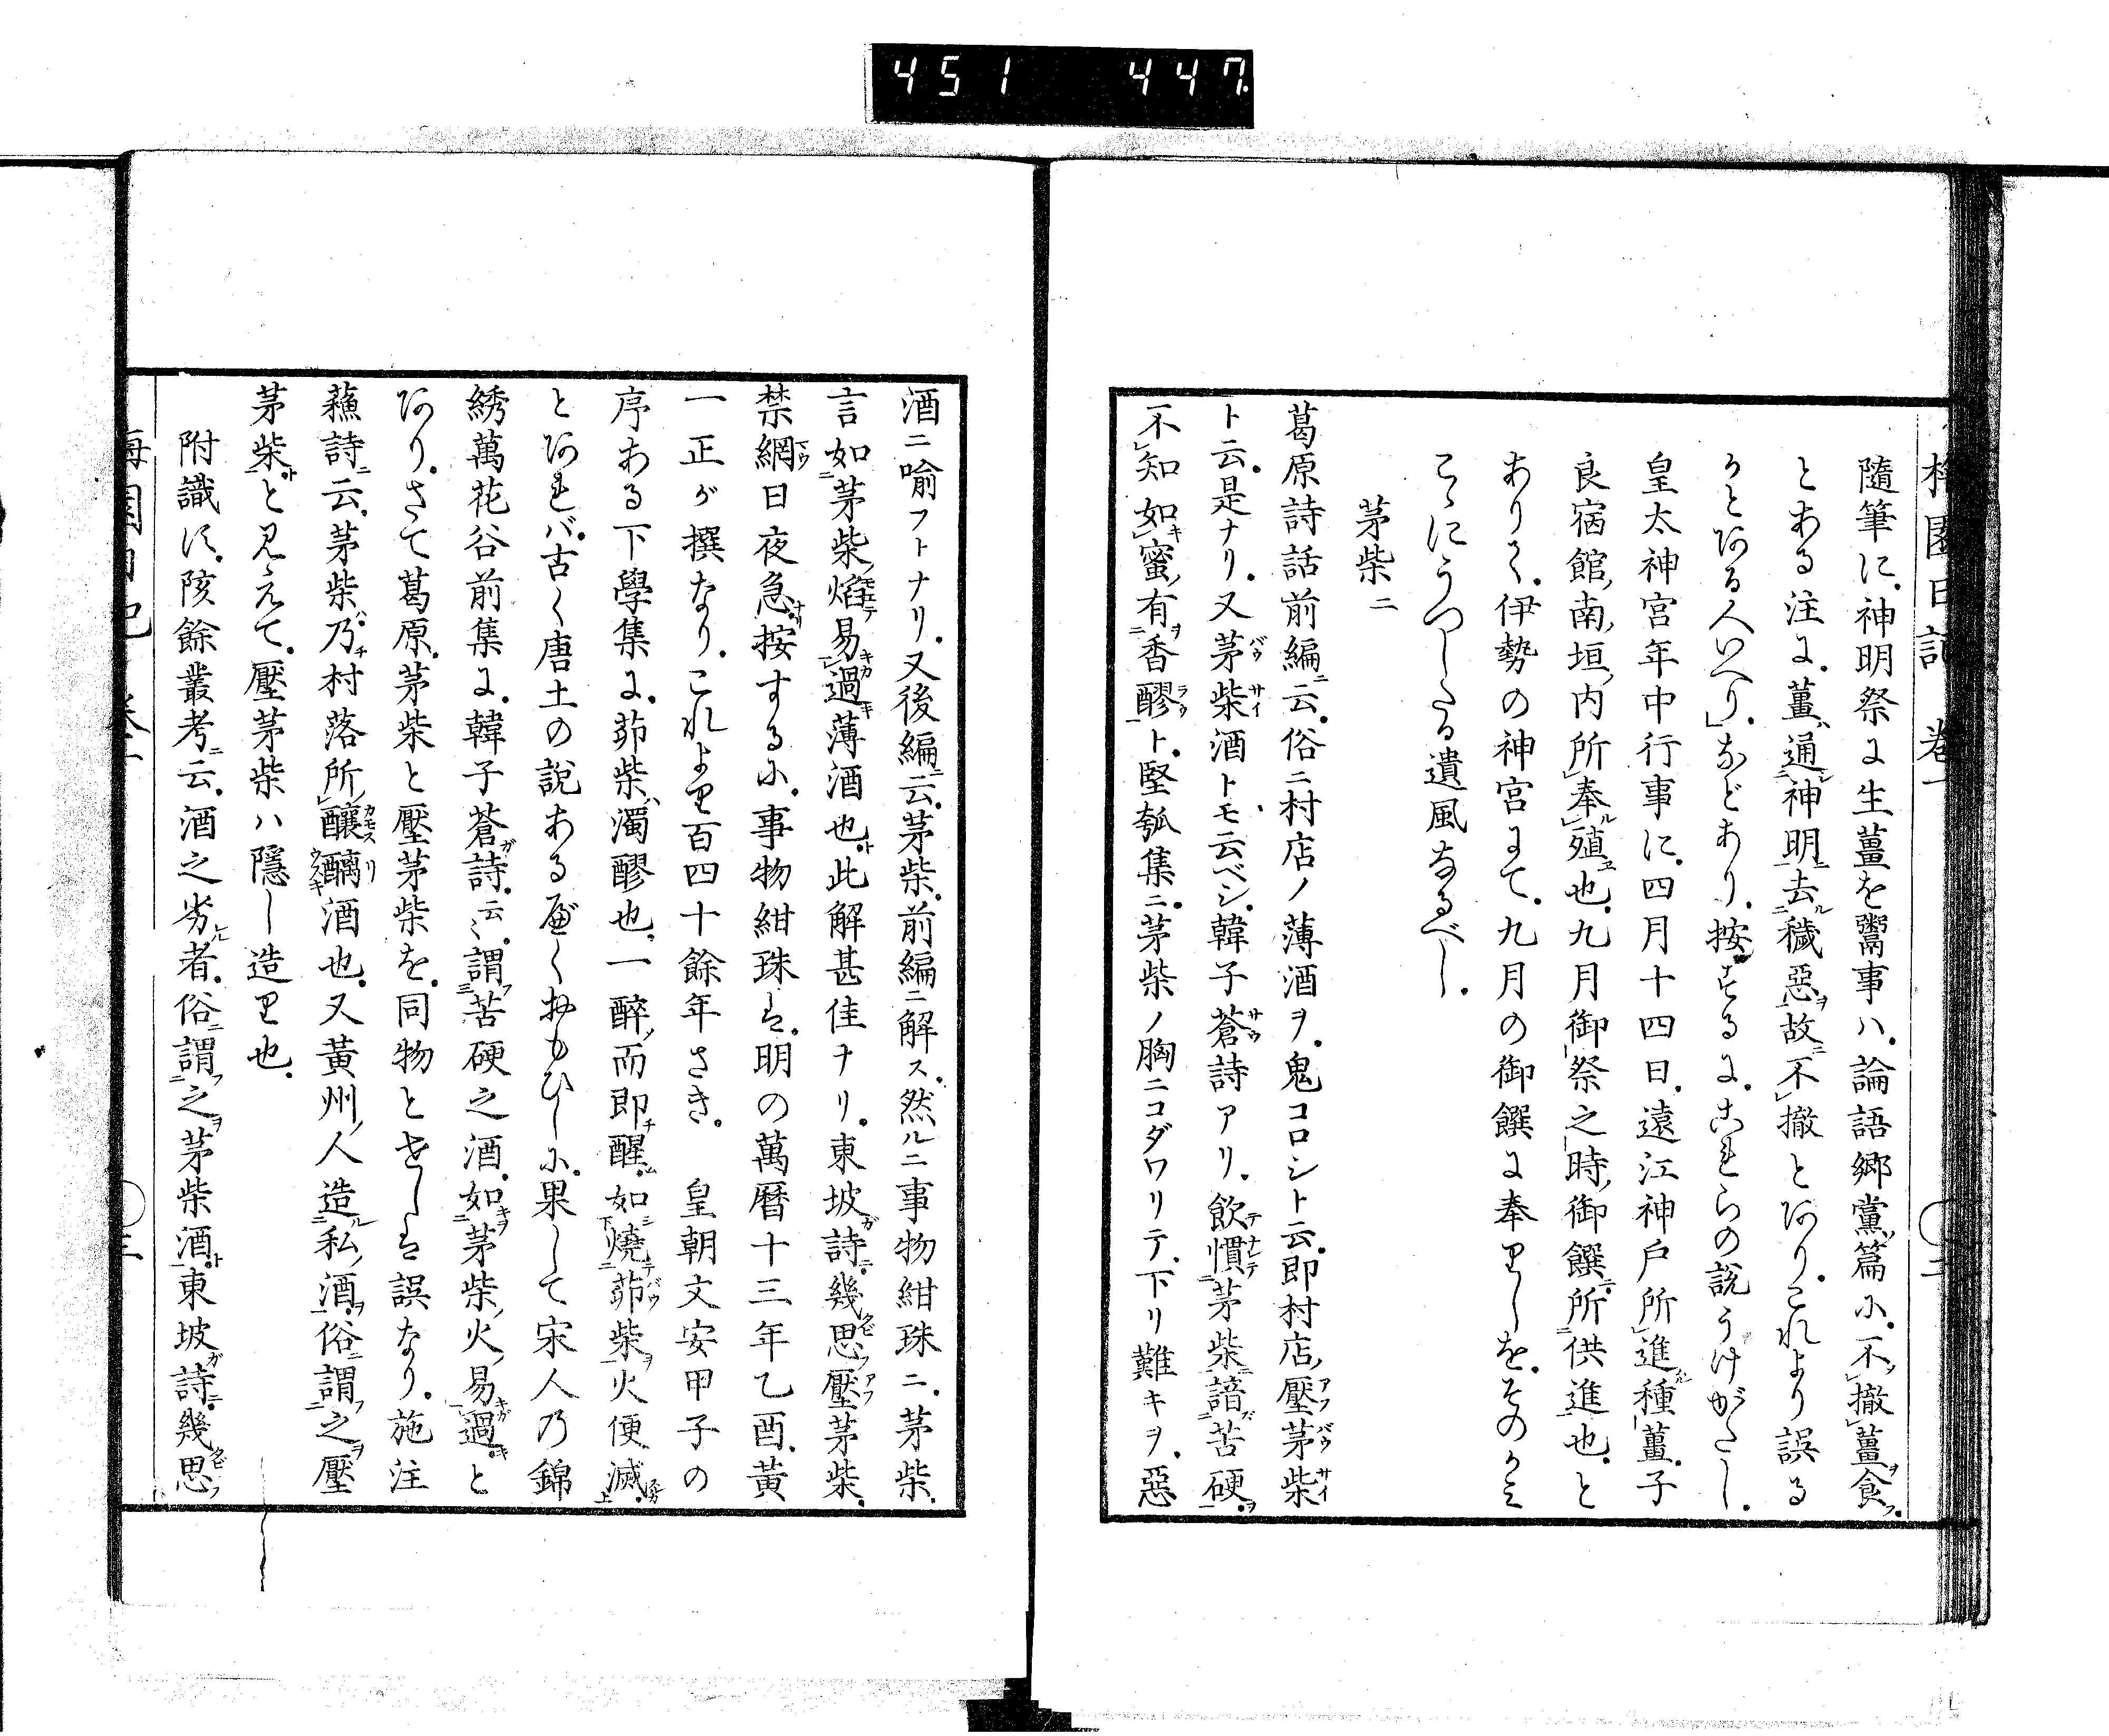 451 447
梅園日記 卷一 ○二
隨筆に。神明祭に生薑を鬻事ハ。論語郷黨ノ篇に。不撤薑食。
とある注に。薑ハ通神明去穢惡故不撤とあり。これより誤る
かとある人いへり」などあり。按ずるに。これらの説うけがたし。
皇太神宮年中行事に。四月十四日。遠江神戸所進種薑子
良宿館ノ南ノ垣ノ内所奉殖也。九月御祭之時ノ御饌所供進也。と
ありて。伊勢の神宮にて。九月の御饌に奉りしを。そのかミ
こゝにうつしたる遺風なるべし。
茅柴二
葛原詩話前編ニ云。俗ニ村店ノ薄酒ヲ。鬼コロシト云。即村店ノ壓茅柴
ト云。是ナリ。又茅柴酒トモ云ベシ。韓子蒼詩アリ。飲慣茅柴諳苦硬。
不知如蜜有香醪ト。堅瓠集ニ。茅柴ノ胸ニコダワリテ。下リ難キヲ。惡
酒ニ喩フトナリ。又後編ニ云。茅柴。前編ニ解ス。然ルニ事物紺珠ニ。茅柴。
言如茅柴焰易過薄酒也。此解甚佳ナリ。東坡詩。幾思壓茅柴。
禁網日夜急。按するに。事物紺珠は。明の萬曆十三年乙酉。黃
一正が撰なり。これより百四十餘年さき。 皇朝文安甲子の
序ある下學集に。茆柴ハ濁醪也。一醉而即醒。如燒茆柴火便滅。
とあれバ。古く唐土の説あるべくおもひしに。果して宋人乃錦
綉萬花谷前集に。韓子蒼詩云。謂苦硬之酒。如茅柴火易過。と
あり。さて葛原。茅柴と壓茅柴を。同物とせしは誤なり。施注
蘓詩ニ云。茅柴乃村落所釀醨酒也。又黃州ノ人造私酒。俗謂之壓
茅柴と見えて。壓茅柴ハ隱し造り也。
附識す。陔餘叢考ニ云。酒之劣者。俗謂之茅柴酒。東坡詩。幾思
梅園日記 卷一 ○三